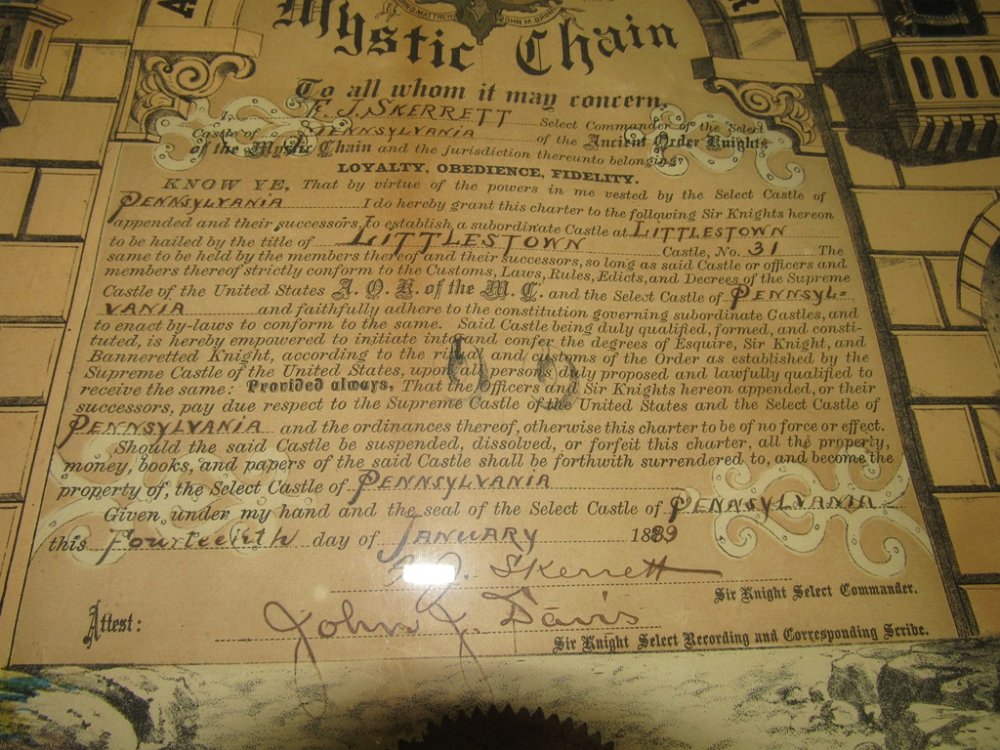 JOHN M. BROW
Mystic Chain
To all whom it may concern,
I, F. J. SKERRETT Select Commander of the Select
Castle of PENNSYLVANIA of the Ancient Order Knights
of the Mystic Chain and the jurisdiction thereunto belonging.
LOYALTY, OBEDIENCE, FIDELITY.
KNOW YE, That by virtue of the powers in me vested by the Select Castle of
PENNSYLVANIA I do hereby grant this charter to the following Sir Knights hereon
appended and their successors, To establish a subordinate Castle at LITTLESTOWN
to be hailed by the title of LITTLESTOWN Castle, No. 31 The
same to be held by the members thereof and their successors, so long as said Castle or officers and
members thereof strictly conform to the Customs, Laws, Rules, Edicts, and Decrees of the Supreme
Castle of the United States A. O. K. of the M. C. and the Select Castle of PENNSYL-
VANIA and faithfully adhere to the constitution governing subordinate Castles, and
to enact by-laws to conform to the same. Said Castle being duly qualified, formed, and consti-
tuted, is hereby empowered to initiate into and confer the degrees of Esquire, Sir Knight, and
Banneretted Knight, according to the ritual and customs of the Order as established by the
Supreme Castle of the United States, upon all persons duly proposed and lawfully qualified to
receive the same: Provided always, That the officers and Sir Knights hereon appended, or their
successors, pay due respect to the Supreme Castle of the United States and the Select Castle of
PENNSYLVANIA and the ordinances thereof, otherwise this charter to be of no force or effect.
Should the said Castle be suspended, dissolved, or forfeit this charter, all the property,
money, books, and papers of the said Castle shall be forthwith surrendered to, and become the
property of, the Select Castle of PENNSYLVANIA
Given, under my hand and the seal of the Select Castle of PENNSYLVANIA
this Fourteenth day of JANUARY 1889
J. Skerrett
Sir Knight Select Commander.
Attest: John J. Davis
Sir Knight Select Recording and Corresponding Scribe.